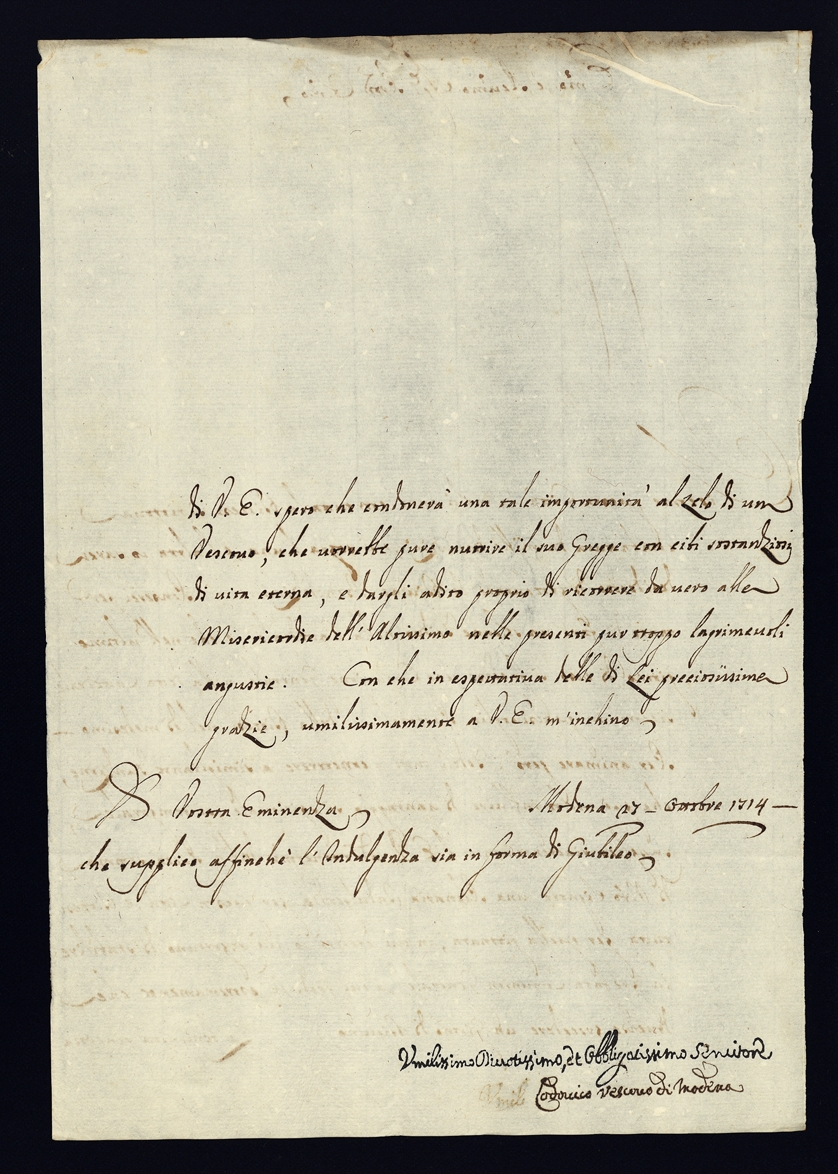 di V. E. spero che condonerà una tale importunità al zelo di un
Vescovo, che vorrebbe pure nutrire il suo Gregge con cibi sostanziosi
di vita eterna, e dargli adito proprio di ricorrere da vero alle
Misericordie dell' Altissimo nelle presenti pur troppo lagrimevoli
angustie. Con che in espectativa delle di Lei preciosissime
grazie, umilissimamente a V. E. m'inchino
D Vostra Eminenza Modena 27 – Ottobre 1714 —
che supplico affinchè l'Indulgenza sia in forma di Giubileo
Umilissimo Divotissimo, et Obbligatissimo Servitore
Lodovico Vescovo di Modena